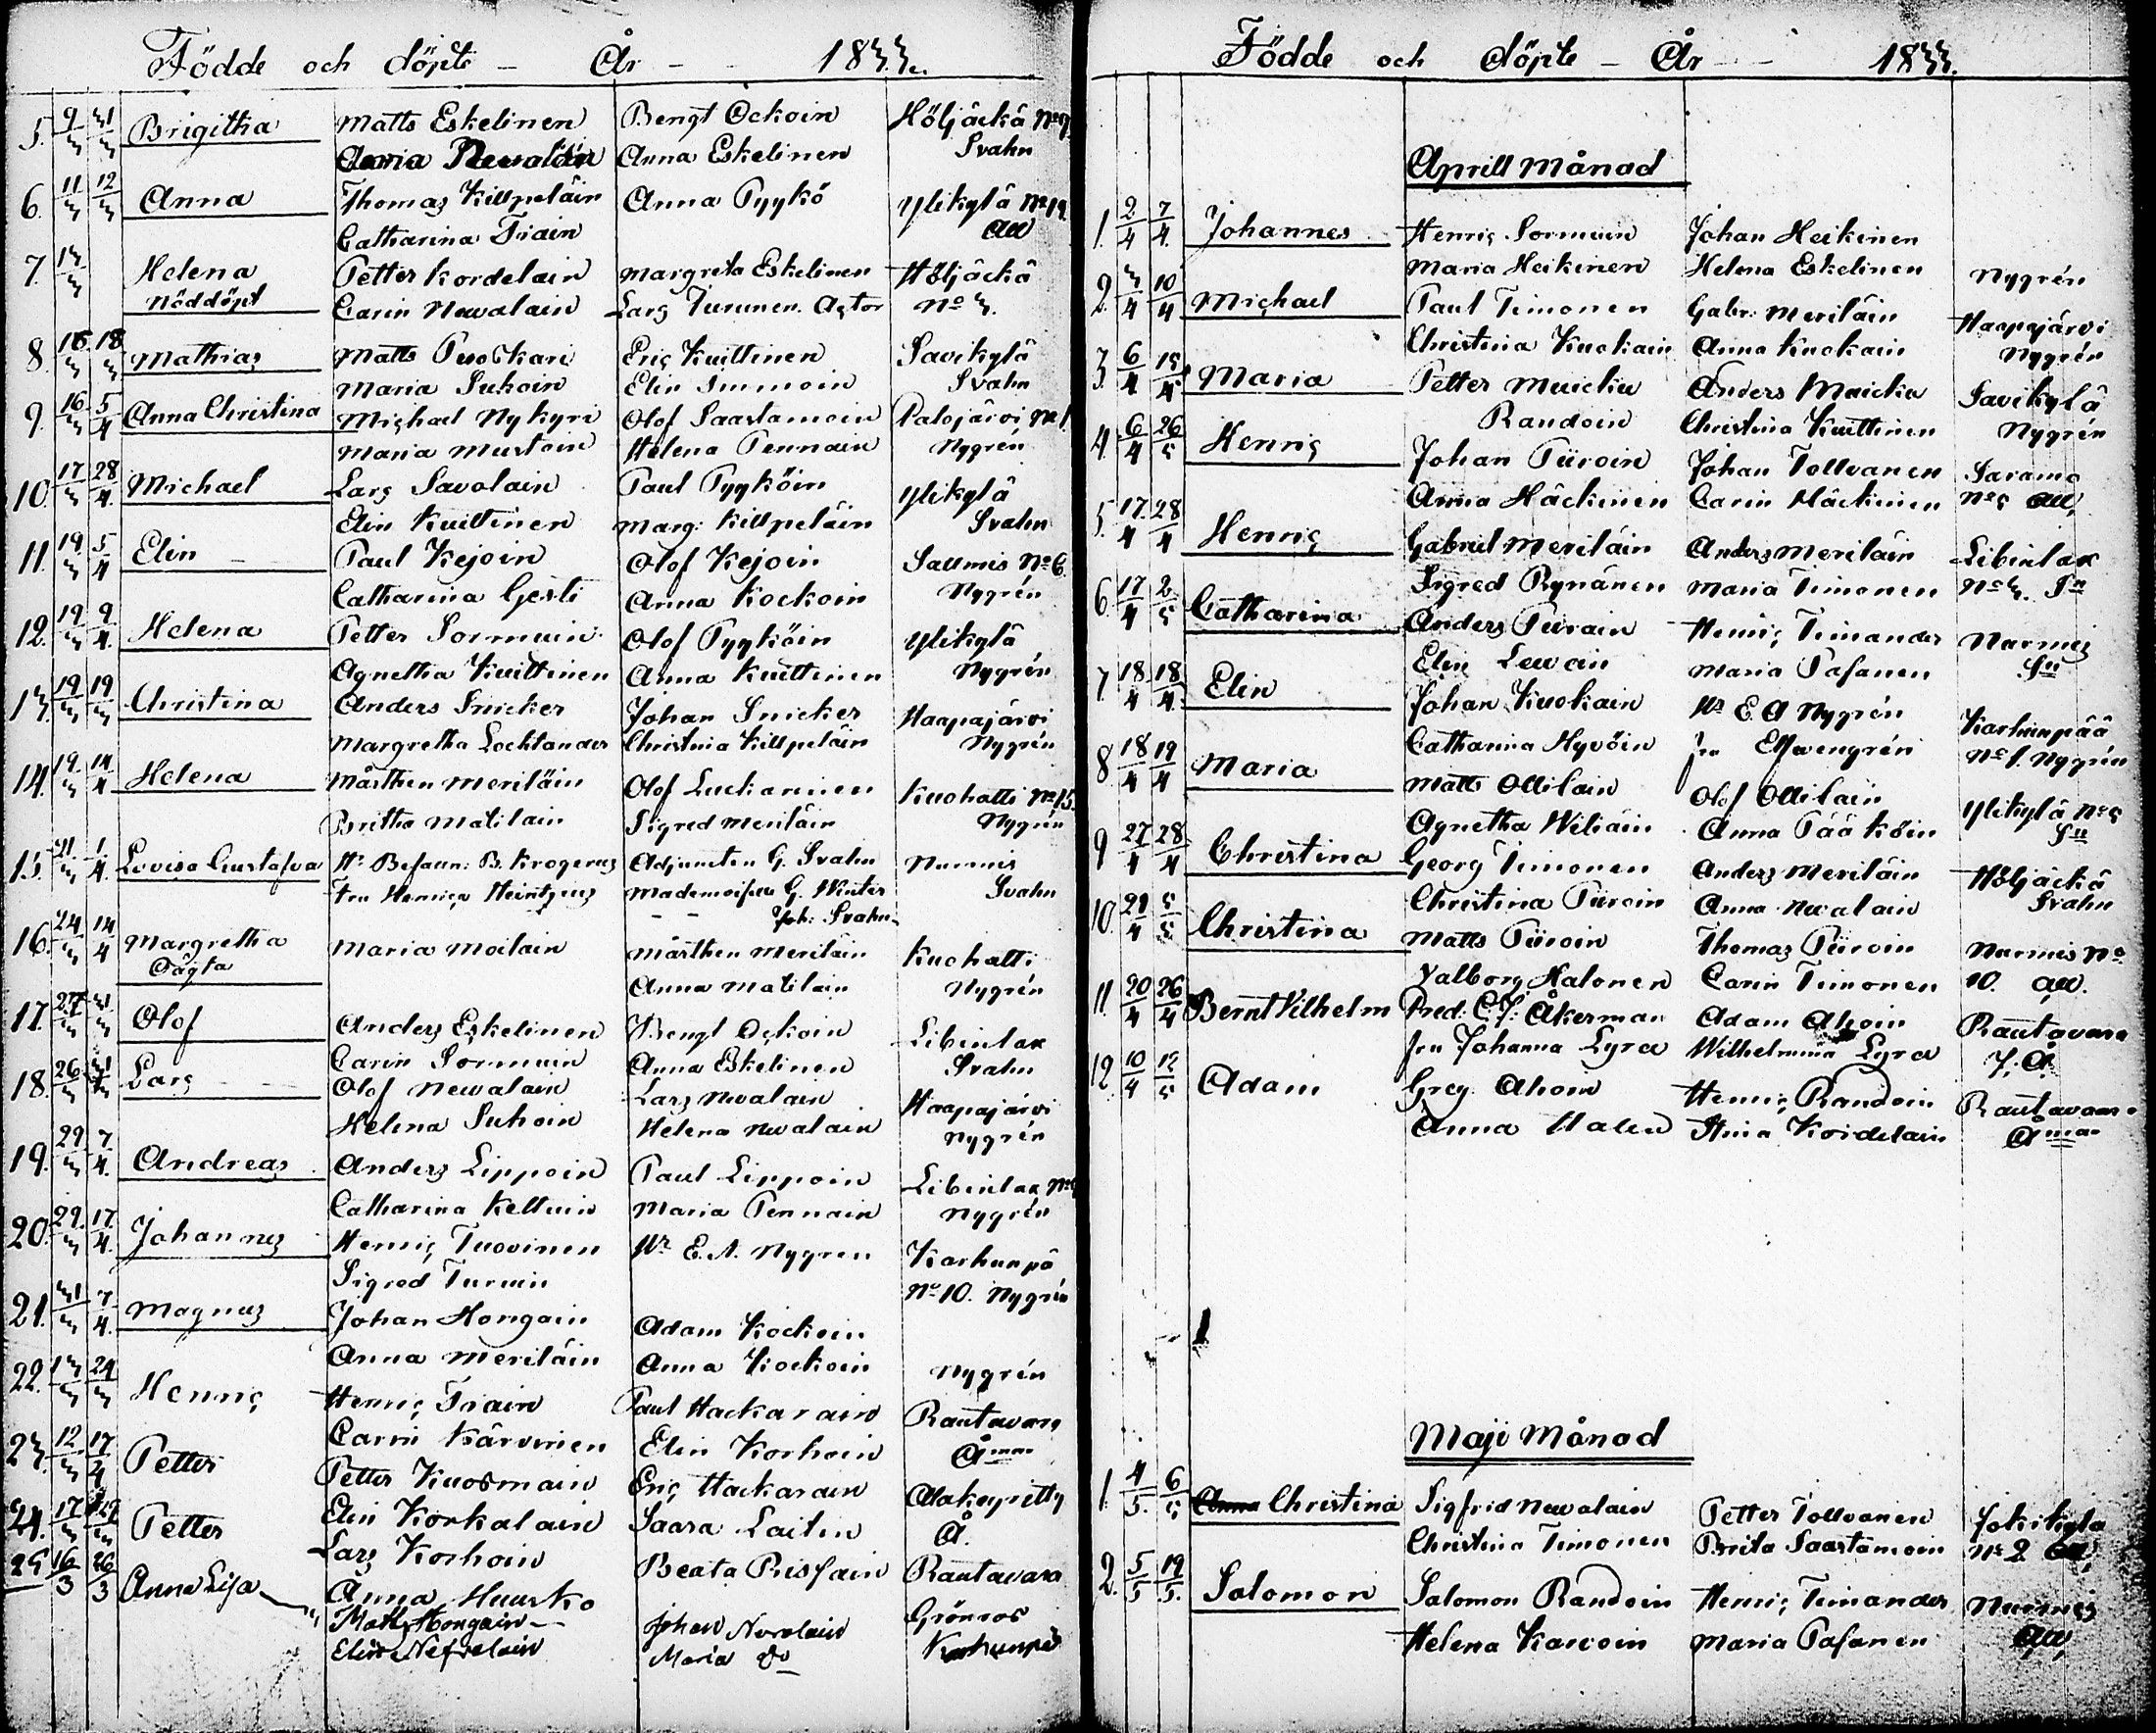 Födde och döpte - År - - 1833.
5. 9/3 31/3 Brigitha Matts Eskelinen Bengt Ockoin Höljäckä No 9
Anna Eskelinen Svahn
6. 11/3 12/3 Anna Thomas Killpeläin Anna Pyykö Ylikylä No 19
Catharina Triain All
7. 13/3 Helena Petter Kordelain Margreta Eskelinen Höljäckä
Nöddöpt Carin Nevalain Lars Turunen. Actor No 3.
8. 18/3 Mathias Matts Eric Kuittinen Savikylä
Maria Suhoin Elin Immoin Svahn
9. 16/3 5/4 Anna Christina Michael Nykyri Olof Saastamoin Palojärvi No 1
Maria Mustoin Helena Pennain Nygrén
10. 17/3 28/4 Michael Lars Savolain Paul Pyyköin Ylikylä
Elin Kuittinen Marg: Killpeläin Svahn
11. 19/3 5/4 Elin - Paul Kejoin Olof Kejoin Salmis No 6.
Catharina Gesti Anna Kockoin Nygrén
12. 19/3 9/4. Helena Petter Sormuin Olof Pyyköin Ylikylä
Agnetha Kuittinen Anna Kuittinen Nygrén
13. 19/3 19/3 Christina Anders Snicker Johan Snicker Haapajärvi
Margretha Lochlander Christina Killpeläin Nygrén
14. 19/3 14/4 Helena Mårthen Meriläin Olof Luckarinen Kuohatti No 15.
Britha Matilain Sigred Meriläin Nygrén
15. 21/3 1/4. Lovisa Gustafva Hr Befaun: B. Krogerus Adjuncten G. Svahn Nurmis
Fru Henrica Heintzius Mademoiselle G. Winter Svahn
- - Joh: Svahn
16. 24/3 14/4 Margretha Maria Moilain Mårthen Meriläin Kuohatti
Oägta Anna Matilain Nygrén
17. 27/3 31/3 Olof Anders Eskelinen Bengt Ockoin Libinlax
Carin Sormuin Anna Eskelinen Svahn
18. 26/3 Lars Olof Newalain Lars Nevalain Haapajärvi
Helena Suhoin Helena Nevalain Nygrén
19. 29/3 7/4. Andreas Anders Lippoin Paul Lippoin Libinlax No
Catharina Keltuin Maria Pennain Nygrén
20. 29/3 17/4. Johannes Henric Tuovinen Hr E. A. Nygren Karhunpä
Sigred Turuin No 10. Nygrén
21. 31/3 7/4. Magnus Johan Hongain Adam Kockoin
Anna Meriläin Anna Kockoin Nygrén
22. 13/3 24/3 Henric Henric Triain Paul Hackarain Rautavara
Carin Kärvinen Elin Korhoin Åman
23. 12/3 17/4 Petter Petter Kuosmain Eric Hackarain Alakeyritty
Elin Korkalain Saara Laitin Å.
24. 17/3 Petter Lars Korhoin Beata Rissain Rautavara
Anna Huusko Grönroos
25 16/3 26/3 Anna Lisa Matts Hongain - Johan Nevalain Karhunpä
Elin Nefvalain Maria do
Födde och döpte - År - - 1833.
Aprill Månad
1. 2/4 7/4. Johannes Henric Sormuin Johan Heikinen
Maria Heikinen Helena Eskelinen Nygrén
2. 3/4 10/4 Michael Paul Timonen Gabr: Meriläin Haapajärvi
Christina Kuokain Anna Kuokain Nygrén
3. 6/4 15/4 Maria Petter Muicku Anders Muicku Savikylä
Randoin Christina Kuittinen Nygrén
4. 6/4 26/5 Henric Johan Piiroin Johan Tollvanen Saramo
Anna Häckinen Carin Häckinen No 5 All
5. 17/4 28/4 Henric Gabriel Meriläin Anders Meriläin Libinlax
Sigred Rynänen Maria Timonen No 3. Sn
6. 17/4 2/5 Catharina Anders Piirain Henric Timander Nurmes
Elin Lewain Maria Pasanen Sn
7. 18/4 18/4. Elin Johan Kuokain Hr E. A Nygrén Karhunpää
Catharina Hyvöin fru No 1. Nygrén
8. 18/4 19/4 Maria Matts Ollilain Olof Ollilain Ylikylä No 5
Agnetha Wiliäin Anna Pääköin Sn
9 27/4 28/4 Christina Georg Timonen Anders Meriläin Höljäckä
Christina Piiroin Anna Nevalain Svahn
10. 29/4 5/5 Christina Matts Piiroin Thomas Piiroin Nurmes No
Valborg Halonen Carin Timonen 10. All.
11. 20/4 26/4 Bernt Vilhelm Pred: C. J: Åkerman Adam Ahoin Rautavara
fru Johanna Lyra Wilhelmina Lyra J. Å.
12. 10/4 12/5 Adam Greg. Ahoin Henric Randoin Rautavaara
Anna Halen Stina Koidelain Åman
Maji Månad
1. 4/5. 6/5 Christina Sigfrid Nevalain Petter Tollvanen Jokikylä
Christina Timonen Brita Saastamoin No 2 All
2. 5/5 19/5. Salomon Salomon Randoin Henric Timander Nurmes
Helena Karvoin Maria Pasanen All